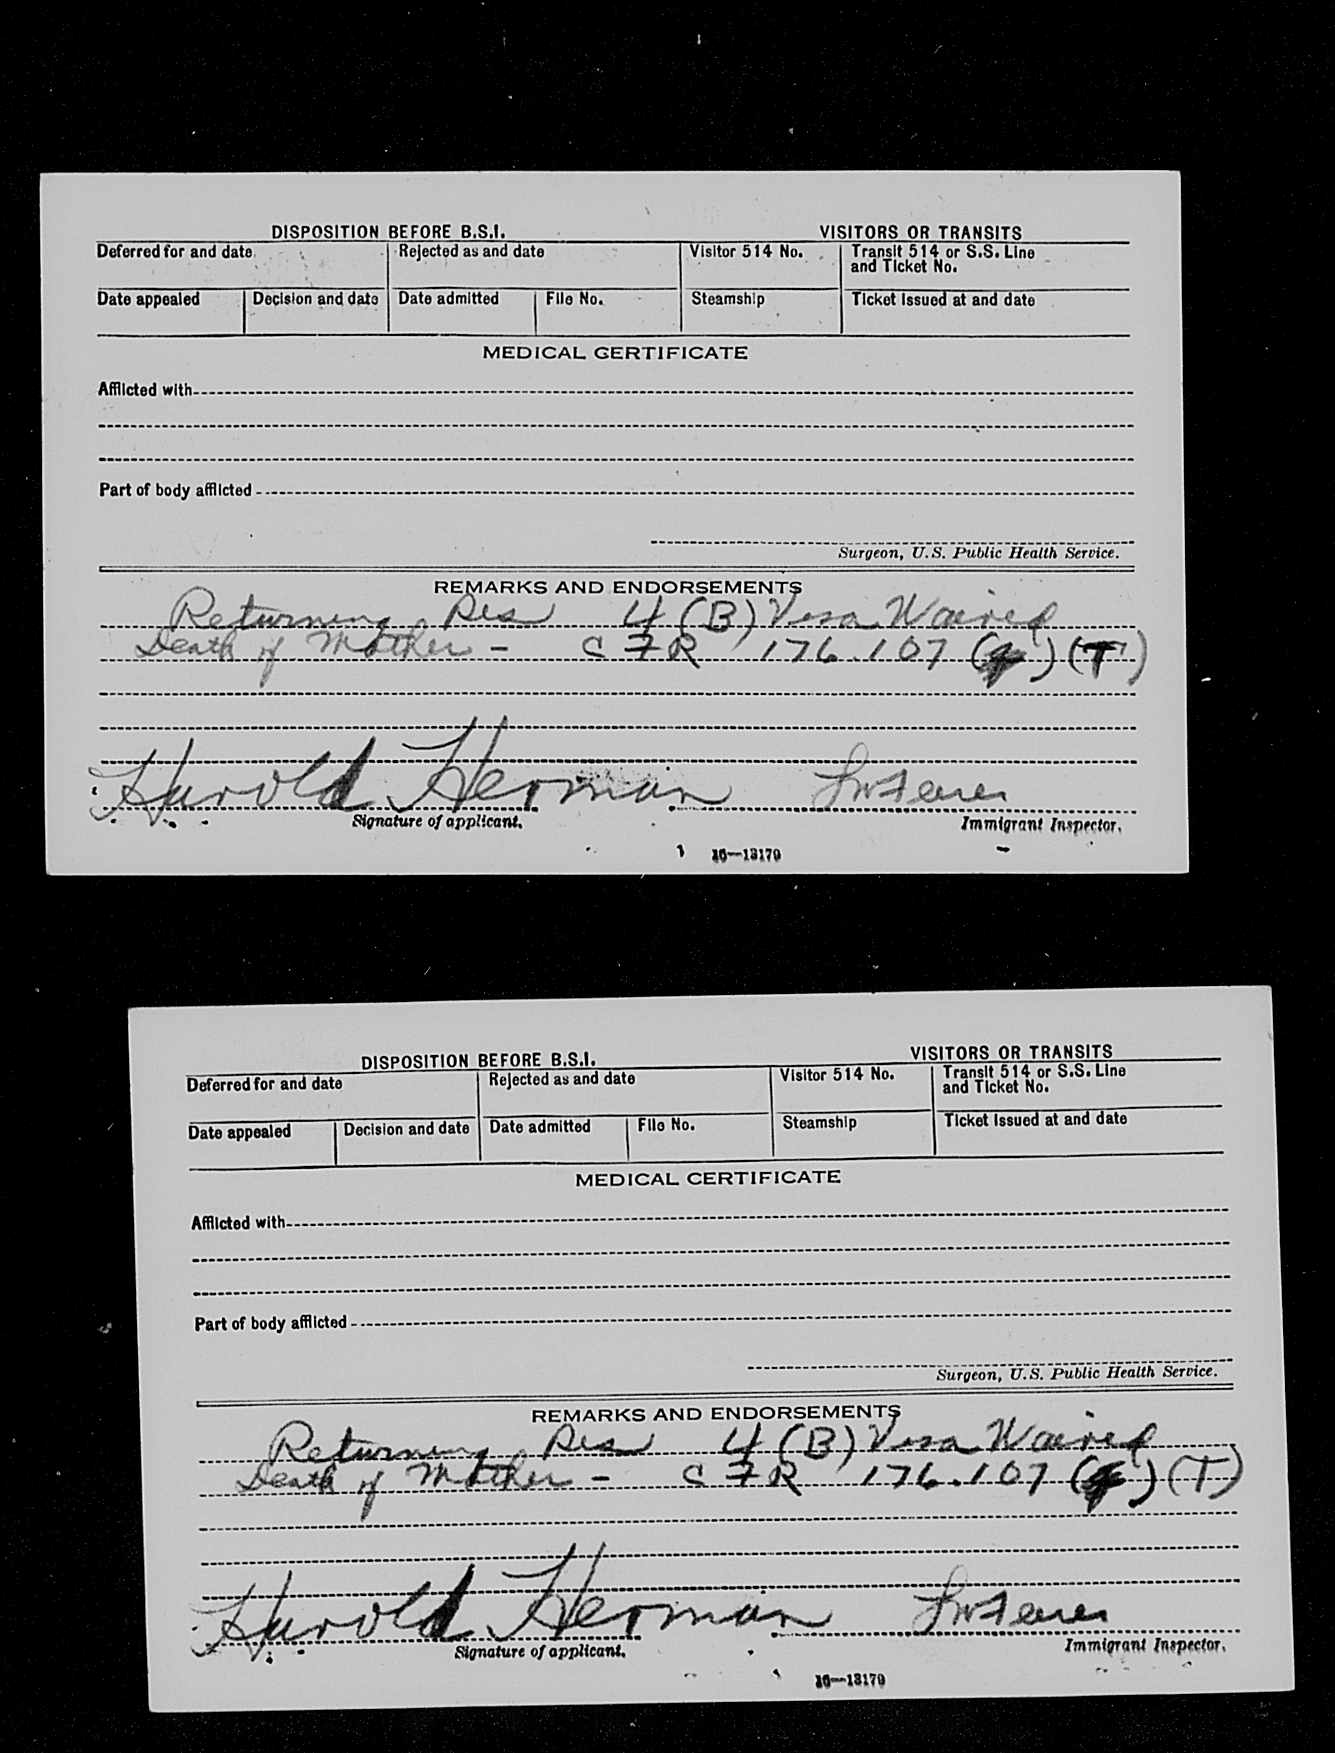 DISPOSITION BEFORE B.S.I. VISITORS OR TRANSITS
Deferred for and date Rejected as and date Visitor 514 No. Transit 514 or S.S. Line
and Ticket No.
Date appealed Decision and date Date admitted File No. Steamship Ticket issued at and date
MEDICAL CERTIFICATE
Afflicted with
Part of body afflicted
Surgeon, U.S. Public Health Service.
REMARKS AND ENDORSEMENTS
Returning Res 4 (B) Visa Waived
Death of Mother - CFR 176.107 () (T)
Harold Herman
Signature of applicant. Immigrant Inspector.
16—13179
DISPOSITION BEFORE B.S.I. VISITORS OR TRANSITS
Deferred for and date Rejected as and date Visitor 514 No. Transit 514 or S.S. Line
and Ticket No.
Date appealed Decision and date Date admitted File No. Steamship Ticket issued at and date
MEDICAL CERTIFICATE
Afflicted with
Part of body afflicted
Surgeon, U.S. Public Health Service.
REMARKS AND ENDORSEMENTS
Returning Res 4 (B) Visa Waived
Death of Mother - CFR 176.107 () (T)
Harold Herman
Signature of applicant. Immigrant Inspector.
16—13179